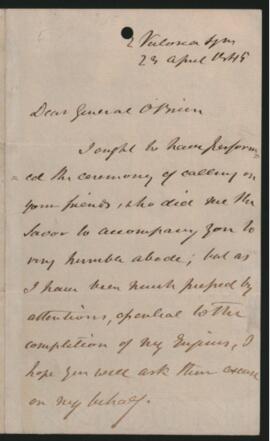 2
23 April 1845
Dear General O'Brien
I ought to have perform
ed the ceremony of calling on
your friends, who did me the
favor to accompany you to
my humble abode; but as
I have been much pressed by
attentions, essential to the
completion of my Engines, I
hope you will ask them excuse
on my behalf.